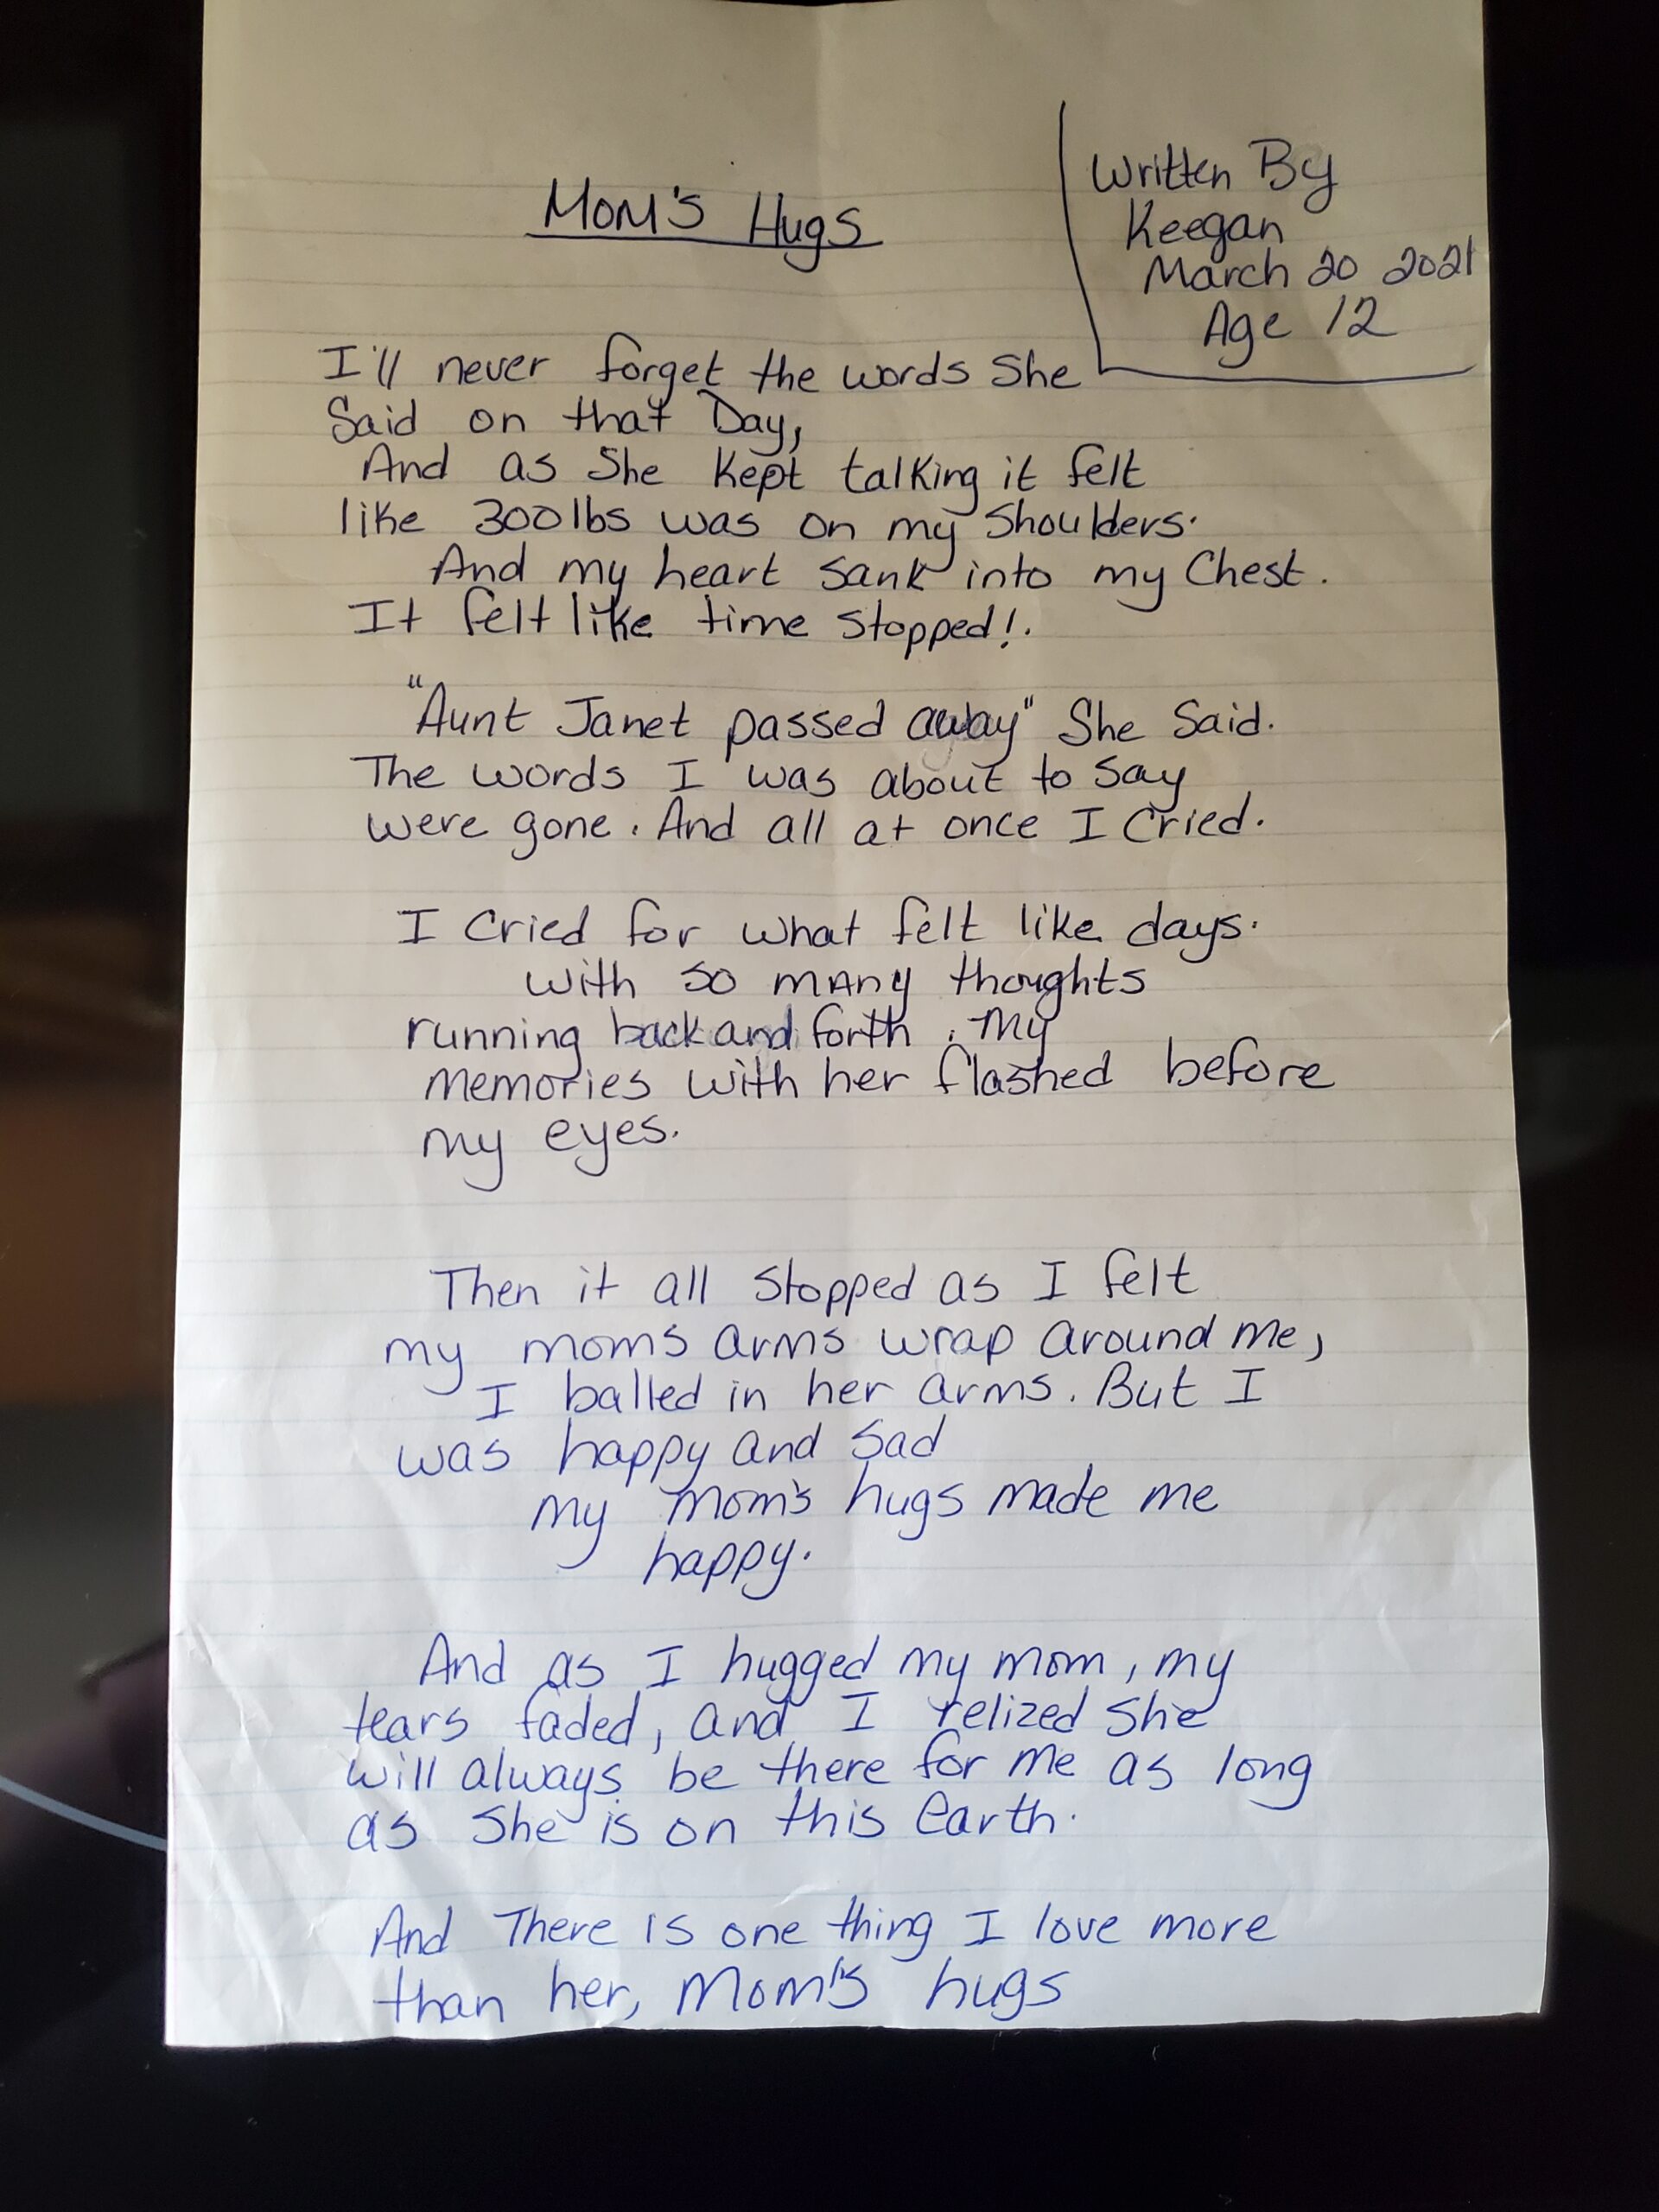 Mom's Hugs
Written By
Keegan
March 20 2021
Age 12
I'll never forget the words She
Said on that Day,
And as She Kept talking it felt
like 300lbs was on my Shoulders.
And my heart Sank into my Chest.
It felt like time Stopped!.
"Aunt Janet passed away" She Said.
The words I was about to Say
were gone. And all at once I Cried.
I Cried for what felt like days.
with so many thoughts
running back and forth. My
memories with her flashed before
my eyes.
Then it all Stopped as I felt
my moms arms wrap around me,
I balled in her arms. But I
was happy and Sad
my mom's hugs made me
happy.
And as I hugged my mom, my
tears faded, and I relized She
will always be there for me as long
as She is on this Earth.
And There is one thing I love more
than her, Mom's hugs